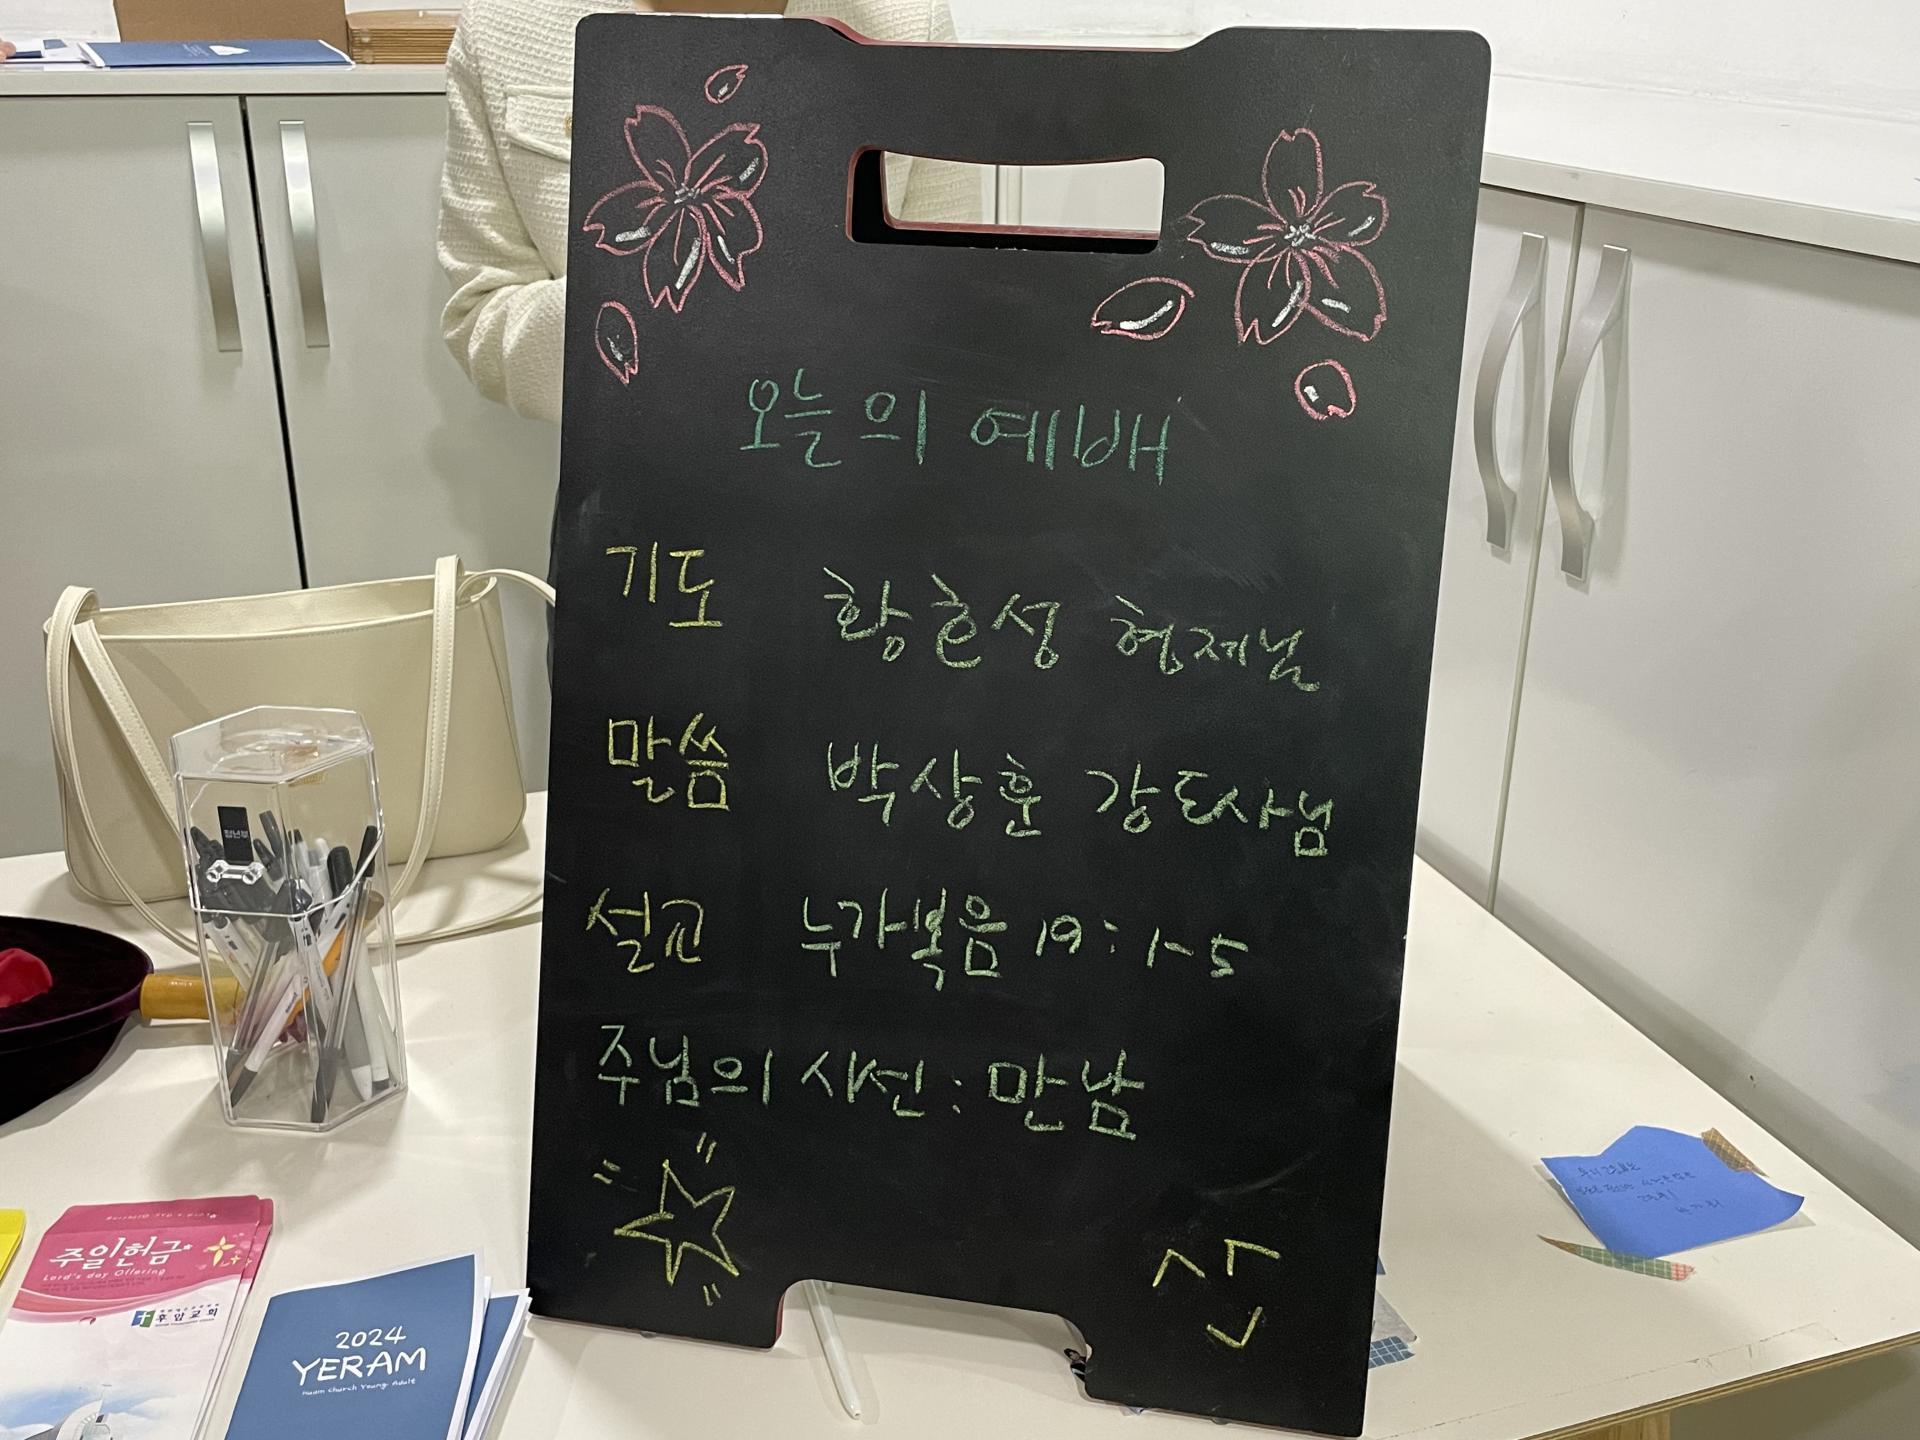 오늘의 예배
기도 황호성 형제님
말씀 박상훈 강도사님
설교 누가복음 19:1-5
주님의 시선: 만남
청년부
주일헌금
Lord's day Offering
후암교회
2024
YERAM
Huam Church Young Adult